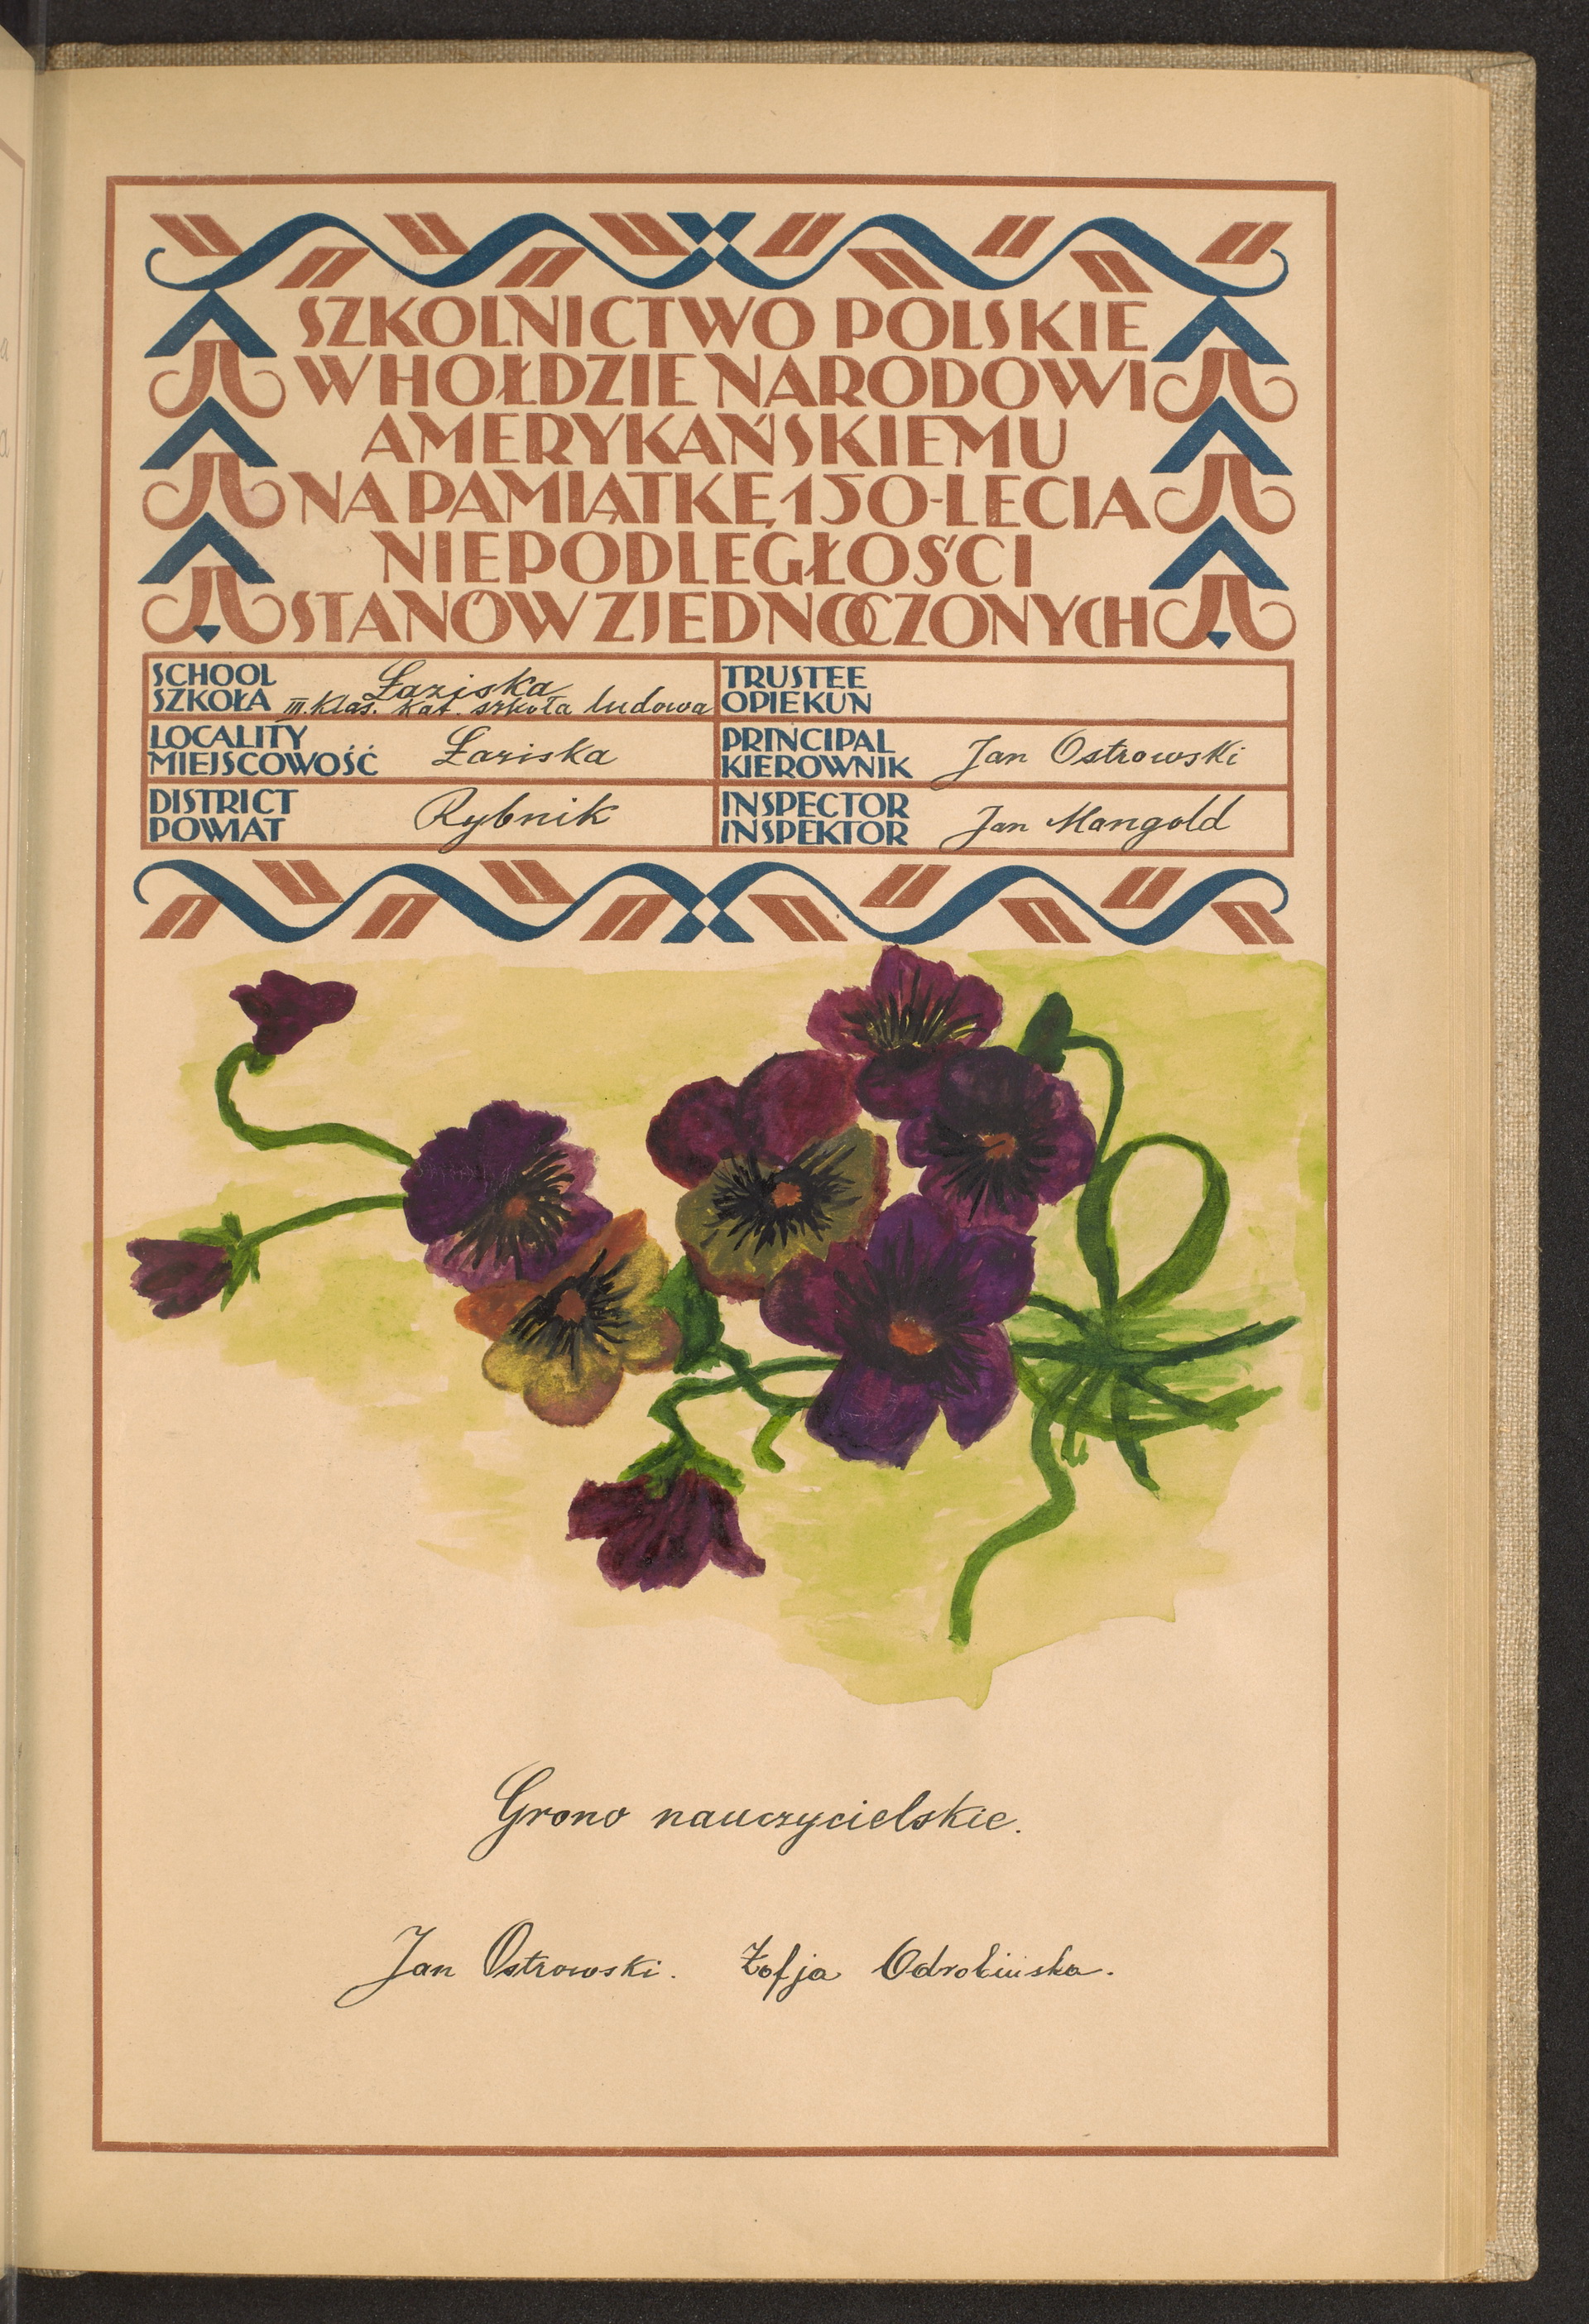 SZKOLNICTWO POLSKIE
W HOŁDZIE NARODOWI
AMERYKAŃSKIEMU
NA PAMIĄTKĘ 150-LECIA
NIEPODLEGŁOŚCI
STANÓW ZJEDNOCZONYCH
SCHOOL
SZKOŁA
Łaziska
III. klas. kat. szkoła ludowa
TRUSTEE
OPIEKUN
LOCALITY
MIEJSCOWOŚĆ
Łaziska
PRINCIPAL
KIEROWNIK
Jan Ostrowski
DISTRICT
POWIAT
Rybnik
INSPECTOR
INSPEKTOR
Jan Mangold
Grono nauczycielskie.
Jan Ostrowski. Zofja Odrobińska.